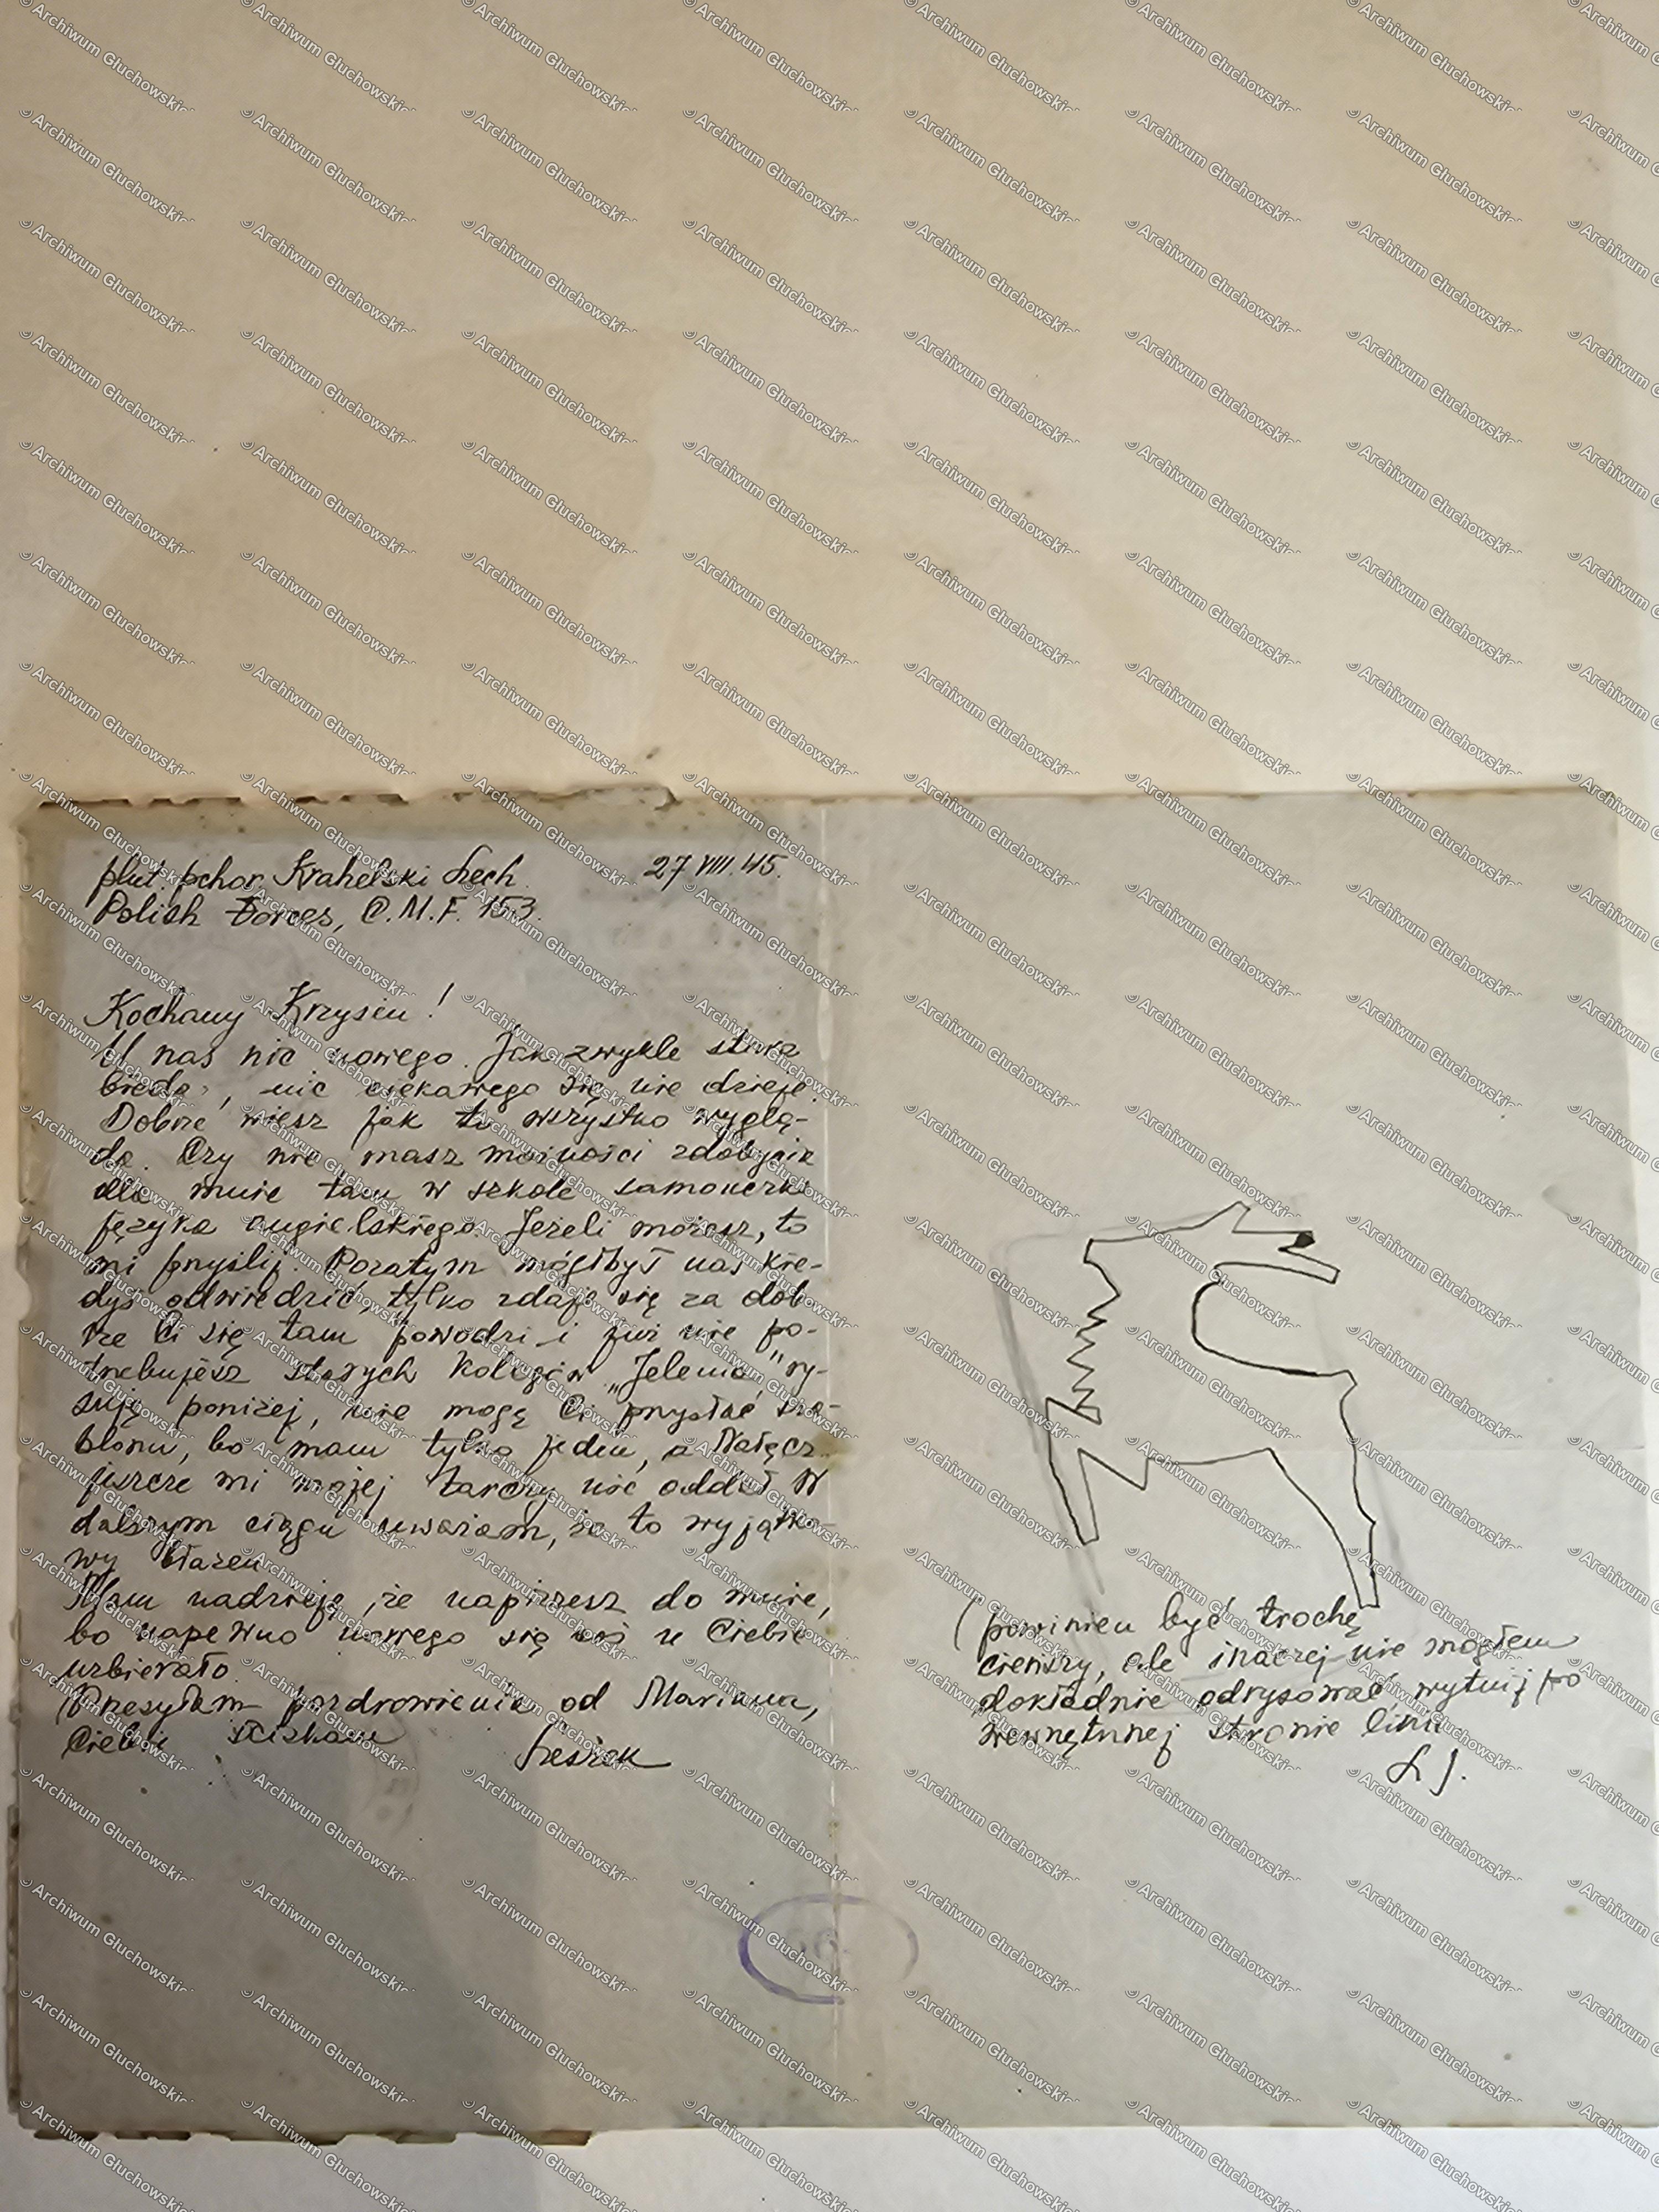 plut. pchor. Krahelski Lech 27 VIII. 45.
Polish Forces, C.M.F. 153.
Kochany Krzysiu!
U nas nic nowego. Jak zwykle stara
bieda, nic ciekawego się nie dzieje.
Dobrze wiesz jak to wszystko wyglą-
da. Czy nie masz możności zdobycia
dla mnie tam w szkole samouczka
języka angielskiego. Jeżeli możesz, to
mi przyślij. Pozatym mógłbyś nas kie-
dyś odwiedzić tylko zdaje się za dob-
rze Ci się tam powodzi i już nie po-
trzebujesz starych kolegów. „Jelenia" ry-
suję poniżej, nie mogę Ci przysłać sza-
blonu, bo mam tylko jeden, a Nałęcz
jeszcze mi mojej tarczy nie oddał. W
dalszym ciągu uważam, że to wyjątko-
wy błazen.
Mam nadzieję, że napiszesz do mnie,
bo napewno nowego się coś u Ciebie
uzbierało.
Przesyłam pozdrowienia od Mariana,
Ciebie ściskam Leszek
(powinien być trochę
cieńszy, ale inaczej nie mogłem
dokładnie odrysować, wytnij po
wewnętrznej stronie linii
© Archiwum Głuchowskich